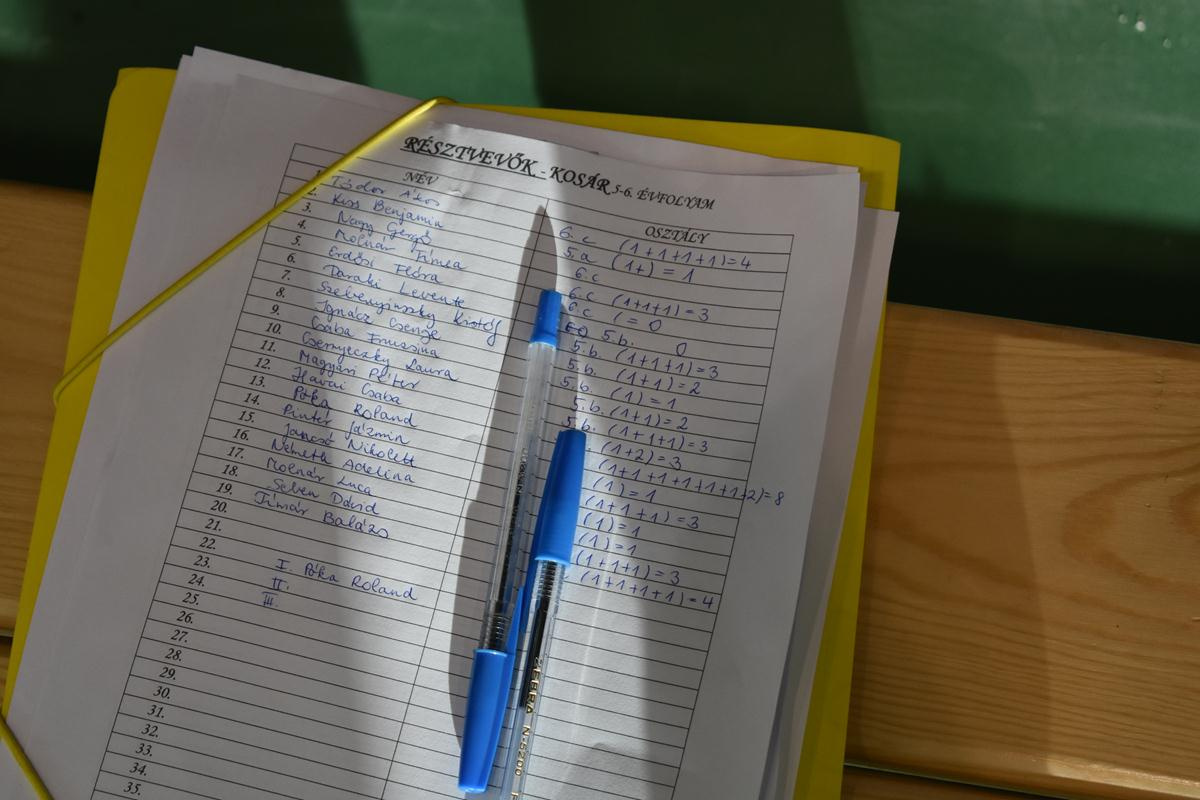 RÉSZTVEVŐK - KOSÁR 5-6. ÉVFOLYAM
NÉV OSZTÁLY
1. Tódor Ákos 6.c (1+1+1+1)=4
2. Kiss Benjamin 5.a (1+)=1
3. Nagy Gergő 6.c
4. Molnár Tímea 6.c (1+1+1)=3
5. Erdősi Flóra 6.c (=0
6. Daraki Levente 5.b. 0
7. Szebenyinszky Kristóf 5.b. (1+1+1)=3
8. Ignácz Csenge 5.b. (1+1)=2
9. Csaba Fruzsina 5.b. (1)=1
10. Csernyeczky Laura 5.b. (1+1)=2
11. Magyari Péter 5.b. (1+1+1)=3
12. Hávai Csaba (1+2)=3
13. Póka Roland (1+1+1+1+1+1+2)=8
14. Pintér Jázmin (1)=1
15. Jancsó Nikolett (1+1+1)=3
16. Németh Adelina (1)=1
17. Molnár Luca (1)=1
18. Seben Dávid (1+1+1)=3
19. Tímár Balázs (1+1+1+1)=4
20.
21.
22. I. Póka Roland
23. II.
24. III.
25.
26.
27.
28.
29.
30.
31.
32.
33.
34.
35.
ZEBRA N-5200